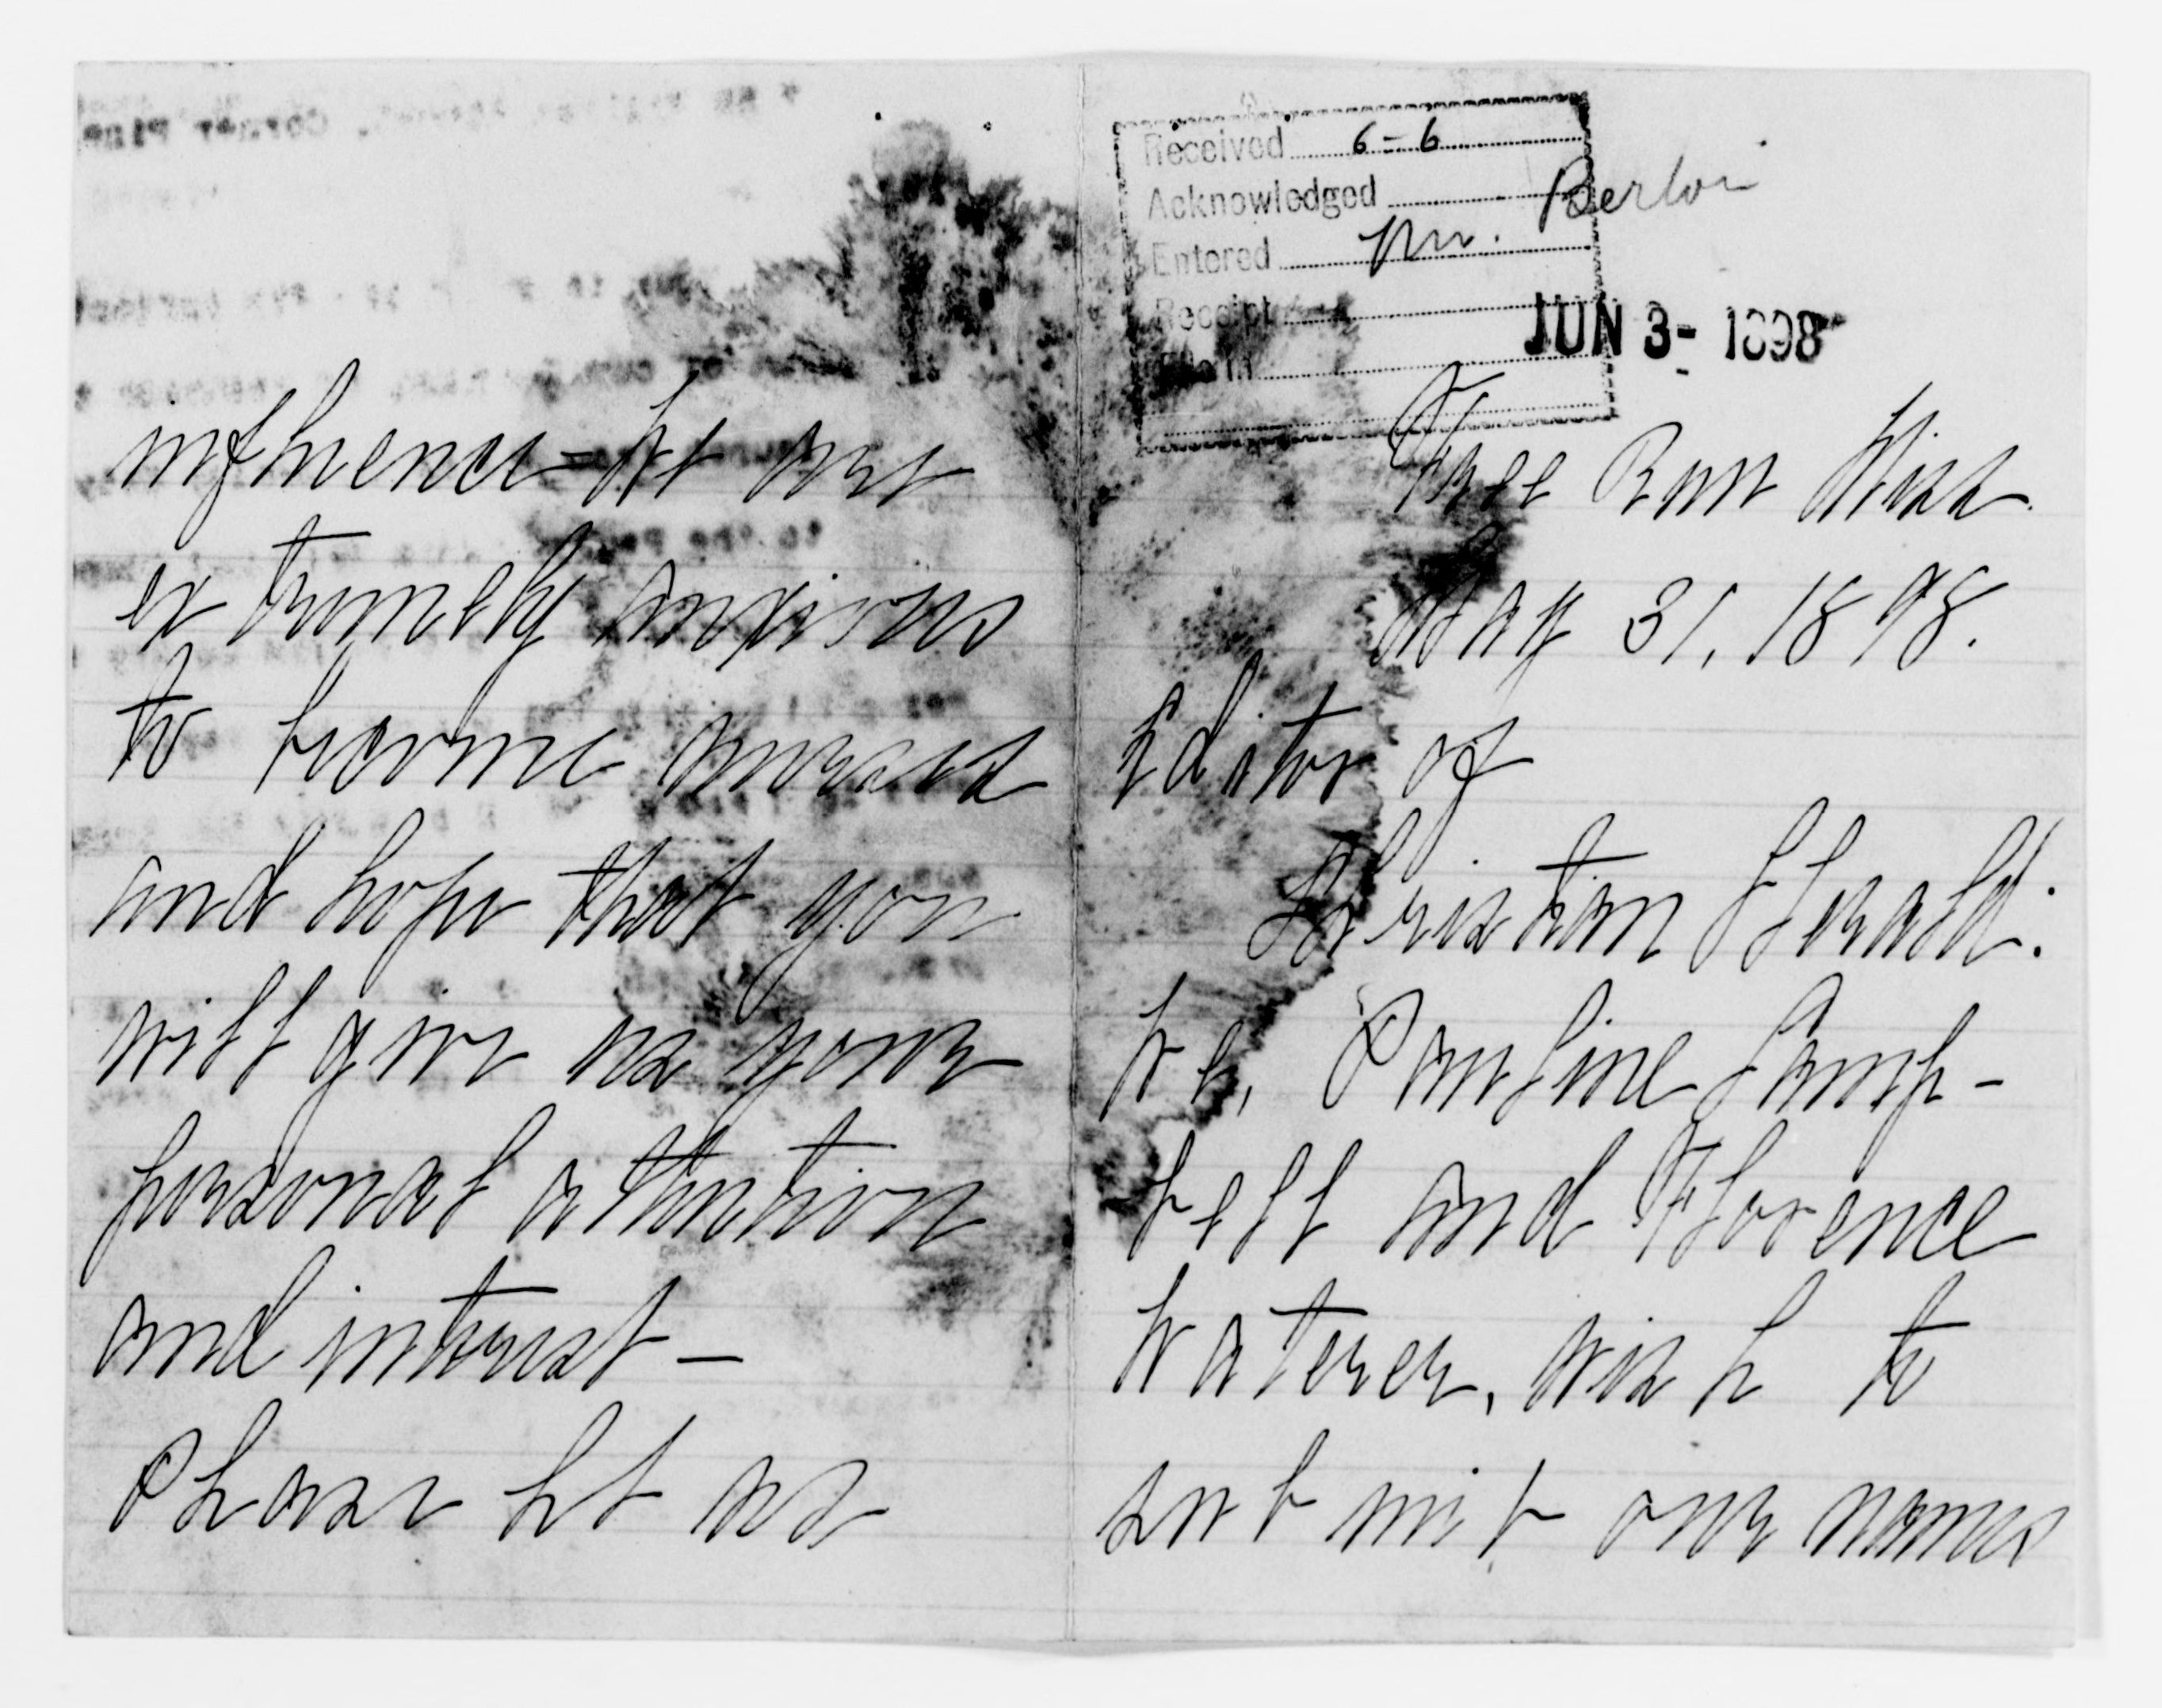 Received 6-6
Acknowledged
Entered
Receipt
File in
JUN 3- 1898
Free Run Miss.
May 31, 1898.
Editor of
Christian Herald:
We, Pauline Camp-
bell and Florence
Waterer, wish to
submit our names
influence - We are
extremely anxious
to become nurses
and hope that you
will give us your
personal attention
and interest —
Please let us